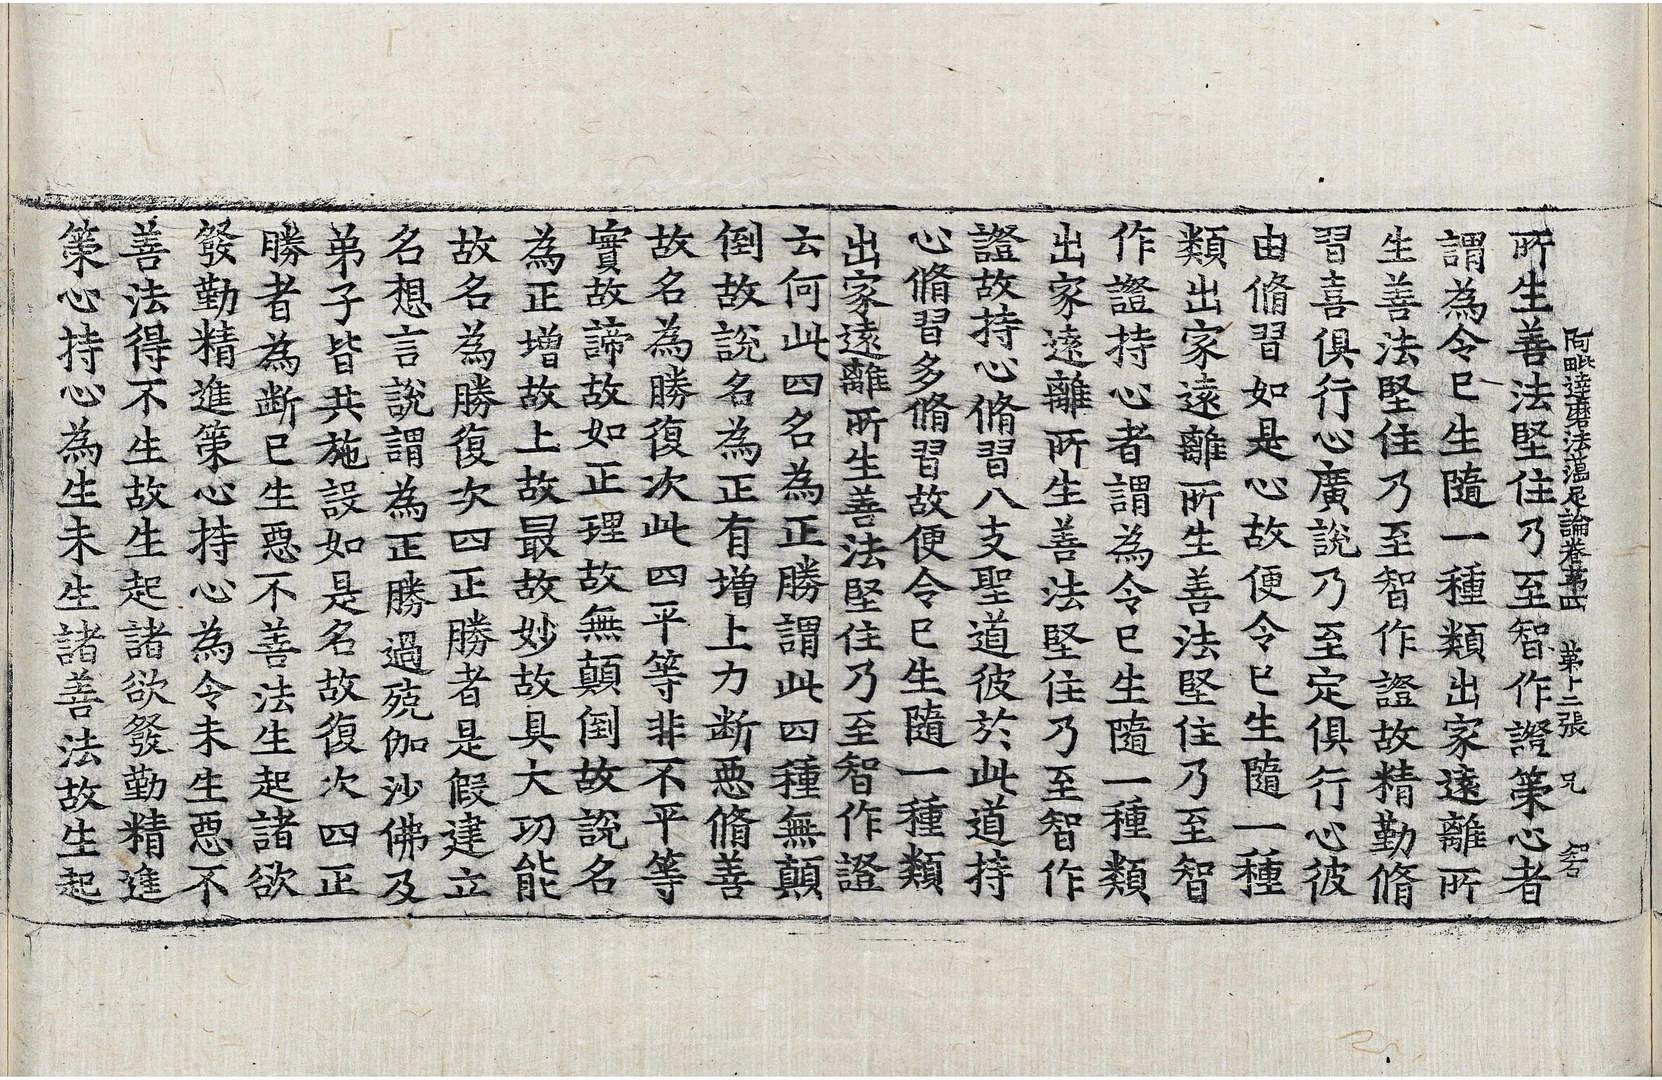 阿毗達磨法蘊足論卷第四 第十二張 兄
所生善法堅住乃至智作證策心者
謂為令已生隨一種類出家遠離所
生善法堅住乃至智作證故精勤脩
習喜俱行心廣說乃至定俱行心彼
由脩習如是心故便令已生隨一種
類出家遠離所生善法堅住乃至智
作證持心者謂為令已生隨一種類
出家遠離所生善法堅住乃至智作
證故持心脩習八支聖道彼於此道持
心脩習多脩習故便令已生隨一種類
出家遠離所生善法堅住乃至智作證
云何此四名為正勝謂此四種無顛
倒故說名為正有增上力断惡脩善
故名為勝復次此四平等非不平等
實故諦故如正理故無顛倒故說名
為正增故上故最故妙故具大功能
故名為勝復次四正勝者是假建立
名想言說謂為正勝過殑伽沙佛及
弟子皆共施設如是名故復次四正
勝者為断已生惡不善法生起諸欲
發勤精進策心持心為令未生惡不
善法得不生故生起諸欲發勤精進
策心持心為生未生諸善法故生起